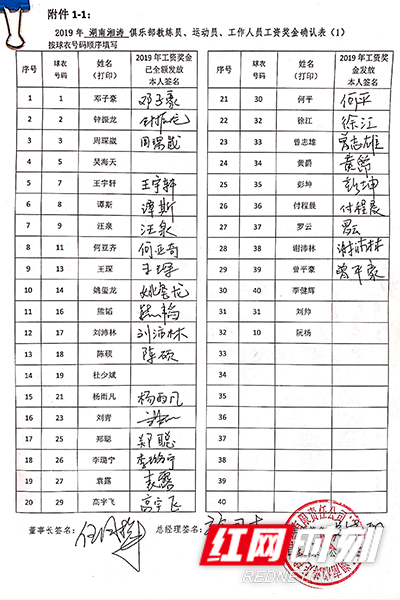 附件 1-1：
2019 年 湖南湘涛 俱乐部教练员、运动员、工作人员工资奖金确认表（1）
按球衣号码顺序填写
序号 球衣号码 姓名（打印） 2019 年工资奖金已全额发放本人签名
1 1 邓子豪 邓子豪
2 2 钟振龙 钟振龙
3 3 周琛崴 周琛崴
4 5 吴海天
5 7 王宇轩 王宇轩
6 8 谭斯 谭斯
7 9 汪泉 汪泉
8 11 何亚齐 何亚齐
9 13 王琛 王琛
10 14 姚玺龙 姚玺龙
11 16 熊韬
12 17 刘沛林 刘沛林
13 18 陈硕 陈硕
14 19 杜少斌
15 21 杨雨凡 杨雨凡
16 23 刘青
17 25 郑聪 郑聪
18 26 李璐宁 李璐宁
19 27 袁露 袁露
20 29 高宇飞 高宇飞
序号 球衣号码 姓名（打印） 2019 年工资奖金发放本人签名
21 30 何平 何平
22 32 徐江 徐江
23 33 曾志雄 曾志雄
24 34 黄爵 黄爵
25 35 彭坤 彭坤
26 36 付程晨 付程晨
27 37 罗云 罗云
28 38 谢沛林 谢沛林
29 39 曾平豪 曾平豪
30 40 李健辉
31 31 刘帅
32 10 阮杨
33
34
35
36
37
38
39
40
董事长签名：
总经理签名：
红网时刻